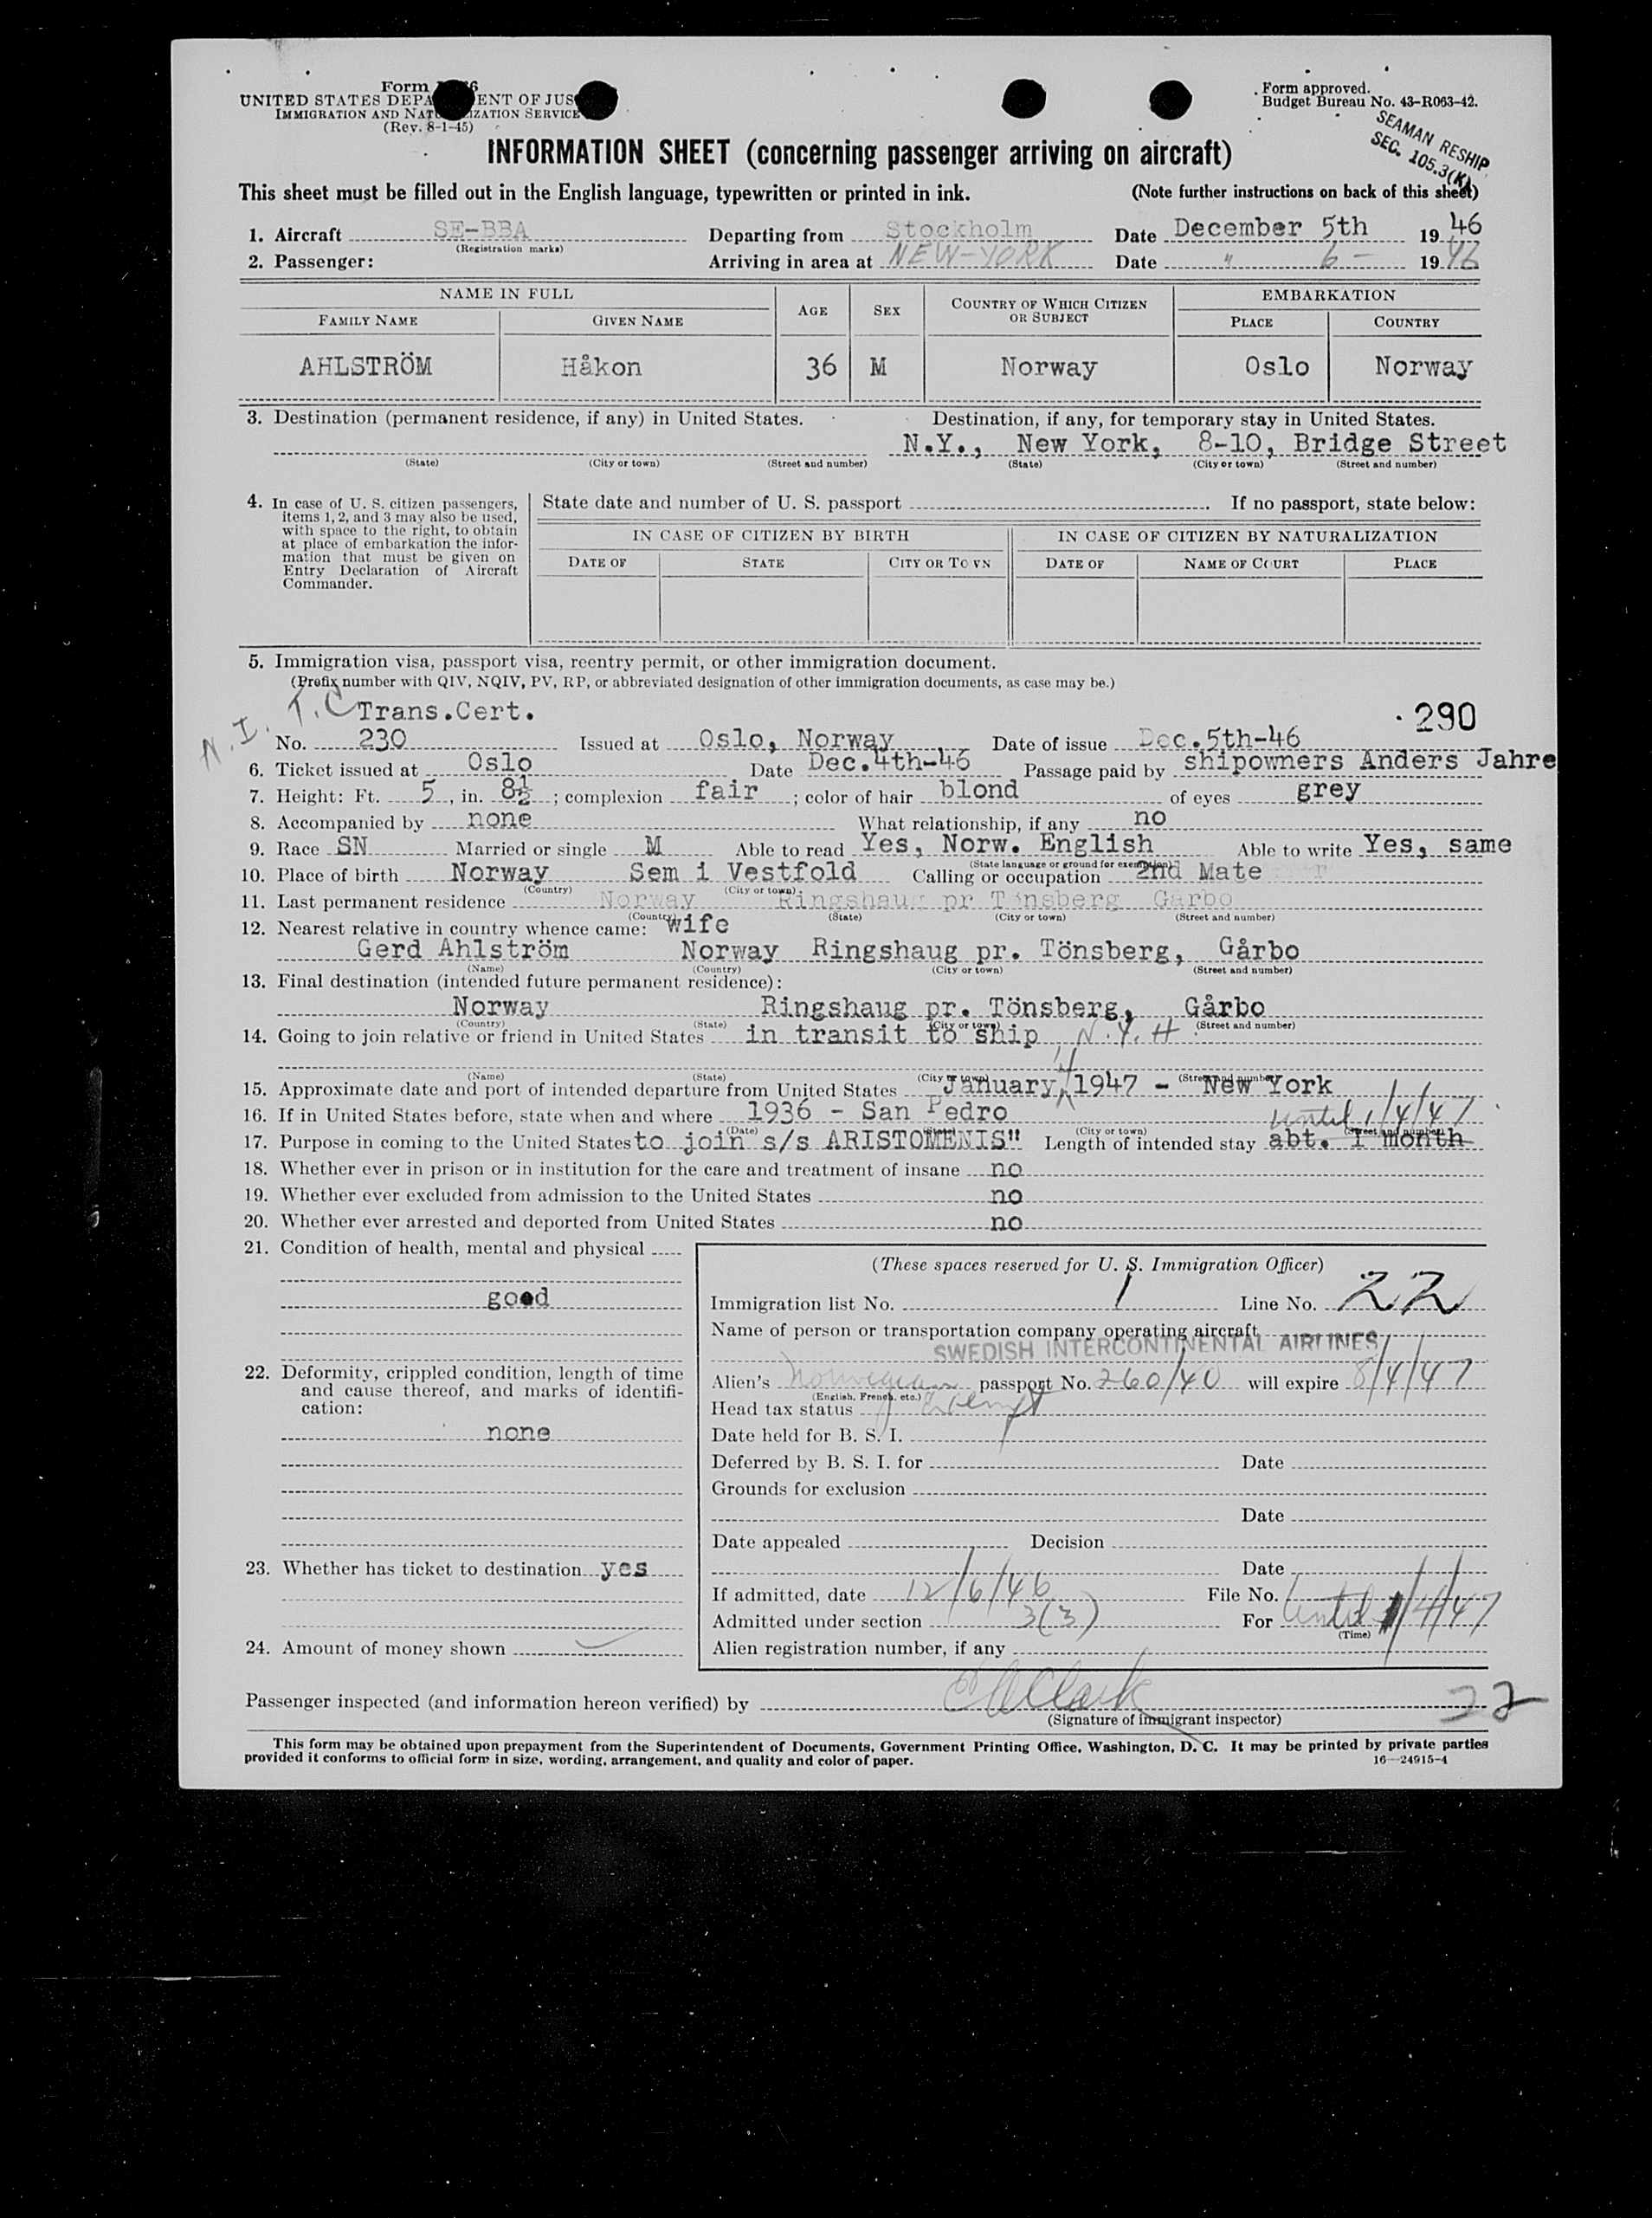 Form
UNITED STATES DEPA ENT OF JUS
IMMIGRATION AND NAT IZATION SERVICE
(Rev. 8-1-45)
Form approved.
Budget Bureau No. 43-R063-42.
SEAMAN RESHIP
SEC. 105.3(K)
INFORMATION SHEET (concerning passenger arriving on aircraft)
This sheet must be filled out in the English language, typewritten or printed in ink. (Note further instructions on back of this sheet)
1. Aircraft SE-BBA Departing from Stockholm Date December 5th 19 46
(Registration marks)
2. Passenger: Arriving in area at NEW-YORK Date " 6 - 19 46
NAME IN FULL AGE SEX COUNTRY OF WHICH CITIZEN OR SUBJECT EMBARKATION
FAMILY NAME GIVEN NAME PLACE COUNTRY
AHLSTRÖM Håkon 36 M Norway Oslo Norway
3. Destination (permanent residence, if any) in United States. Destination, if any, for temporary stay in United States.
N.Y., New York, 8-10, Bridge Street
(State) (City or town) (Street and number) (State) (City or town) (Street and number)
4. In case of U. S. citizen passengers,
items 1, 2, and 3 may also be used,
with space to the right, to obtain
at place of embarkation the infor-
mation that must be given on
Entry Declaration of Aircraft
Commander.
State date and number of U. S. passport . If no passport, state below:
IN CASE OF CITIZEN BY BIRTH IN CASE OF CITIZEN BY NATURALIZATION
DATE OF STATE CITY OR TOWN DATE OF NAME OF COURT PLACE
5. Immigration visa, passport visa, reentry permit, or other immigration document.
(Prefix number with QIV, NQIV, PV, RP, or abbreviated designation of other immigration documents, as case may be.)
N.I. T.C Trans.Cert. 290
No. 230 Issued at Oslo, Norway Date of issue Dec.5th-46
6. Ticket issued at Oslo Date Dec.4th-46 Passage paid by shipowners Anders Jahre
7. Height: Ft. 5, in. 8½; complexion fair; color of hair blond of eyes grey
8. Accompanied by none What relationship, if any no
9. Race SN Married or single M Able to read Yes, Norw. English Able to write Yes, same
(State language or ground for exemption)
10. Place of birth Norway Sem i Vestfold Calling or occupation 2nd Mate
(Country) (City or town)
11. Last permanent residence Norway Ringshaug pr Tönsberg Gårbo
(Country) (State) (City or town) (Street and number)
12. Nearest relative in country whence came: wife
Gerd Ahlström Norway Ringshaug pr. Tönsberg, Gårbo
(Name) (Country) (City or town) (Street and number)
13. Final destination (intended future permanent residence):
Norway Ringshaug pr. Tönsberg, Gårbo
(Country) (State) (City or town) (Street and number)
14. Going to join relative or friend in United States in transit to ship N.Y.H.
(Name) (State) (City or town) (Street and number)
15. Approximate date and port of intended departure from United States January, 4 1947 - New York
16. If in United States before, state when and where 1936 - San Pedro until 1/4/47
(Date) (State) (City or town) (Street and number)
17. Purpose in coming to the United States to join s/s ARISTOMENIS" Length of intended stay abt. 1 month
18. Whether ever in prison or in institution for the care and treatment of insane no
19. Whether ever excluded from admission to the United States no
20. Whether ever arrested and deported from United States no
21. Condition of health, mental and physical
good
22. Deformity, crippled condition, length of time
and cause thereof, and marks of identifi-
cation:
none
23. Whether has ticket to destination yes
24. Amount of money shown
(These spaces reserved for U. S. Immigration Officer)
Immigration list No. 1 Line No. 22
Name of person or transportation company operating aircraft
SWEDISH INTERCONTINENTAL AIRLINES
Alien's Norwegian passport No. 260/40 will expire 8/4/47
(English, French, etc.)
Head tax status Exempt
Date held for B. S. I.
Deferred by B. S. I. for Date
Grounds for exclusion
Date
Date appealed Decision
Date
If admitted, date 12/6/46 File No.
Admitted under section 3(3) For Until 1/4/47
(Time)
Alien registration number, if any
Passenger inspected (and information hereon verified) by Clark 22
(Signature of immigrant inspector)
This form may be obtained upon prepayment from the Superintendent of Documents, Government Printing Office, Washington, D. C. It may be printed by private parties
provided it conforms to official form in size, wording, arrangement, and quality and color of paper. 16—24915-4